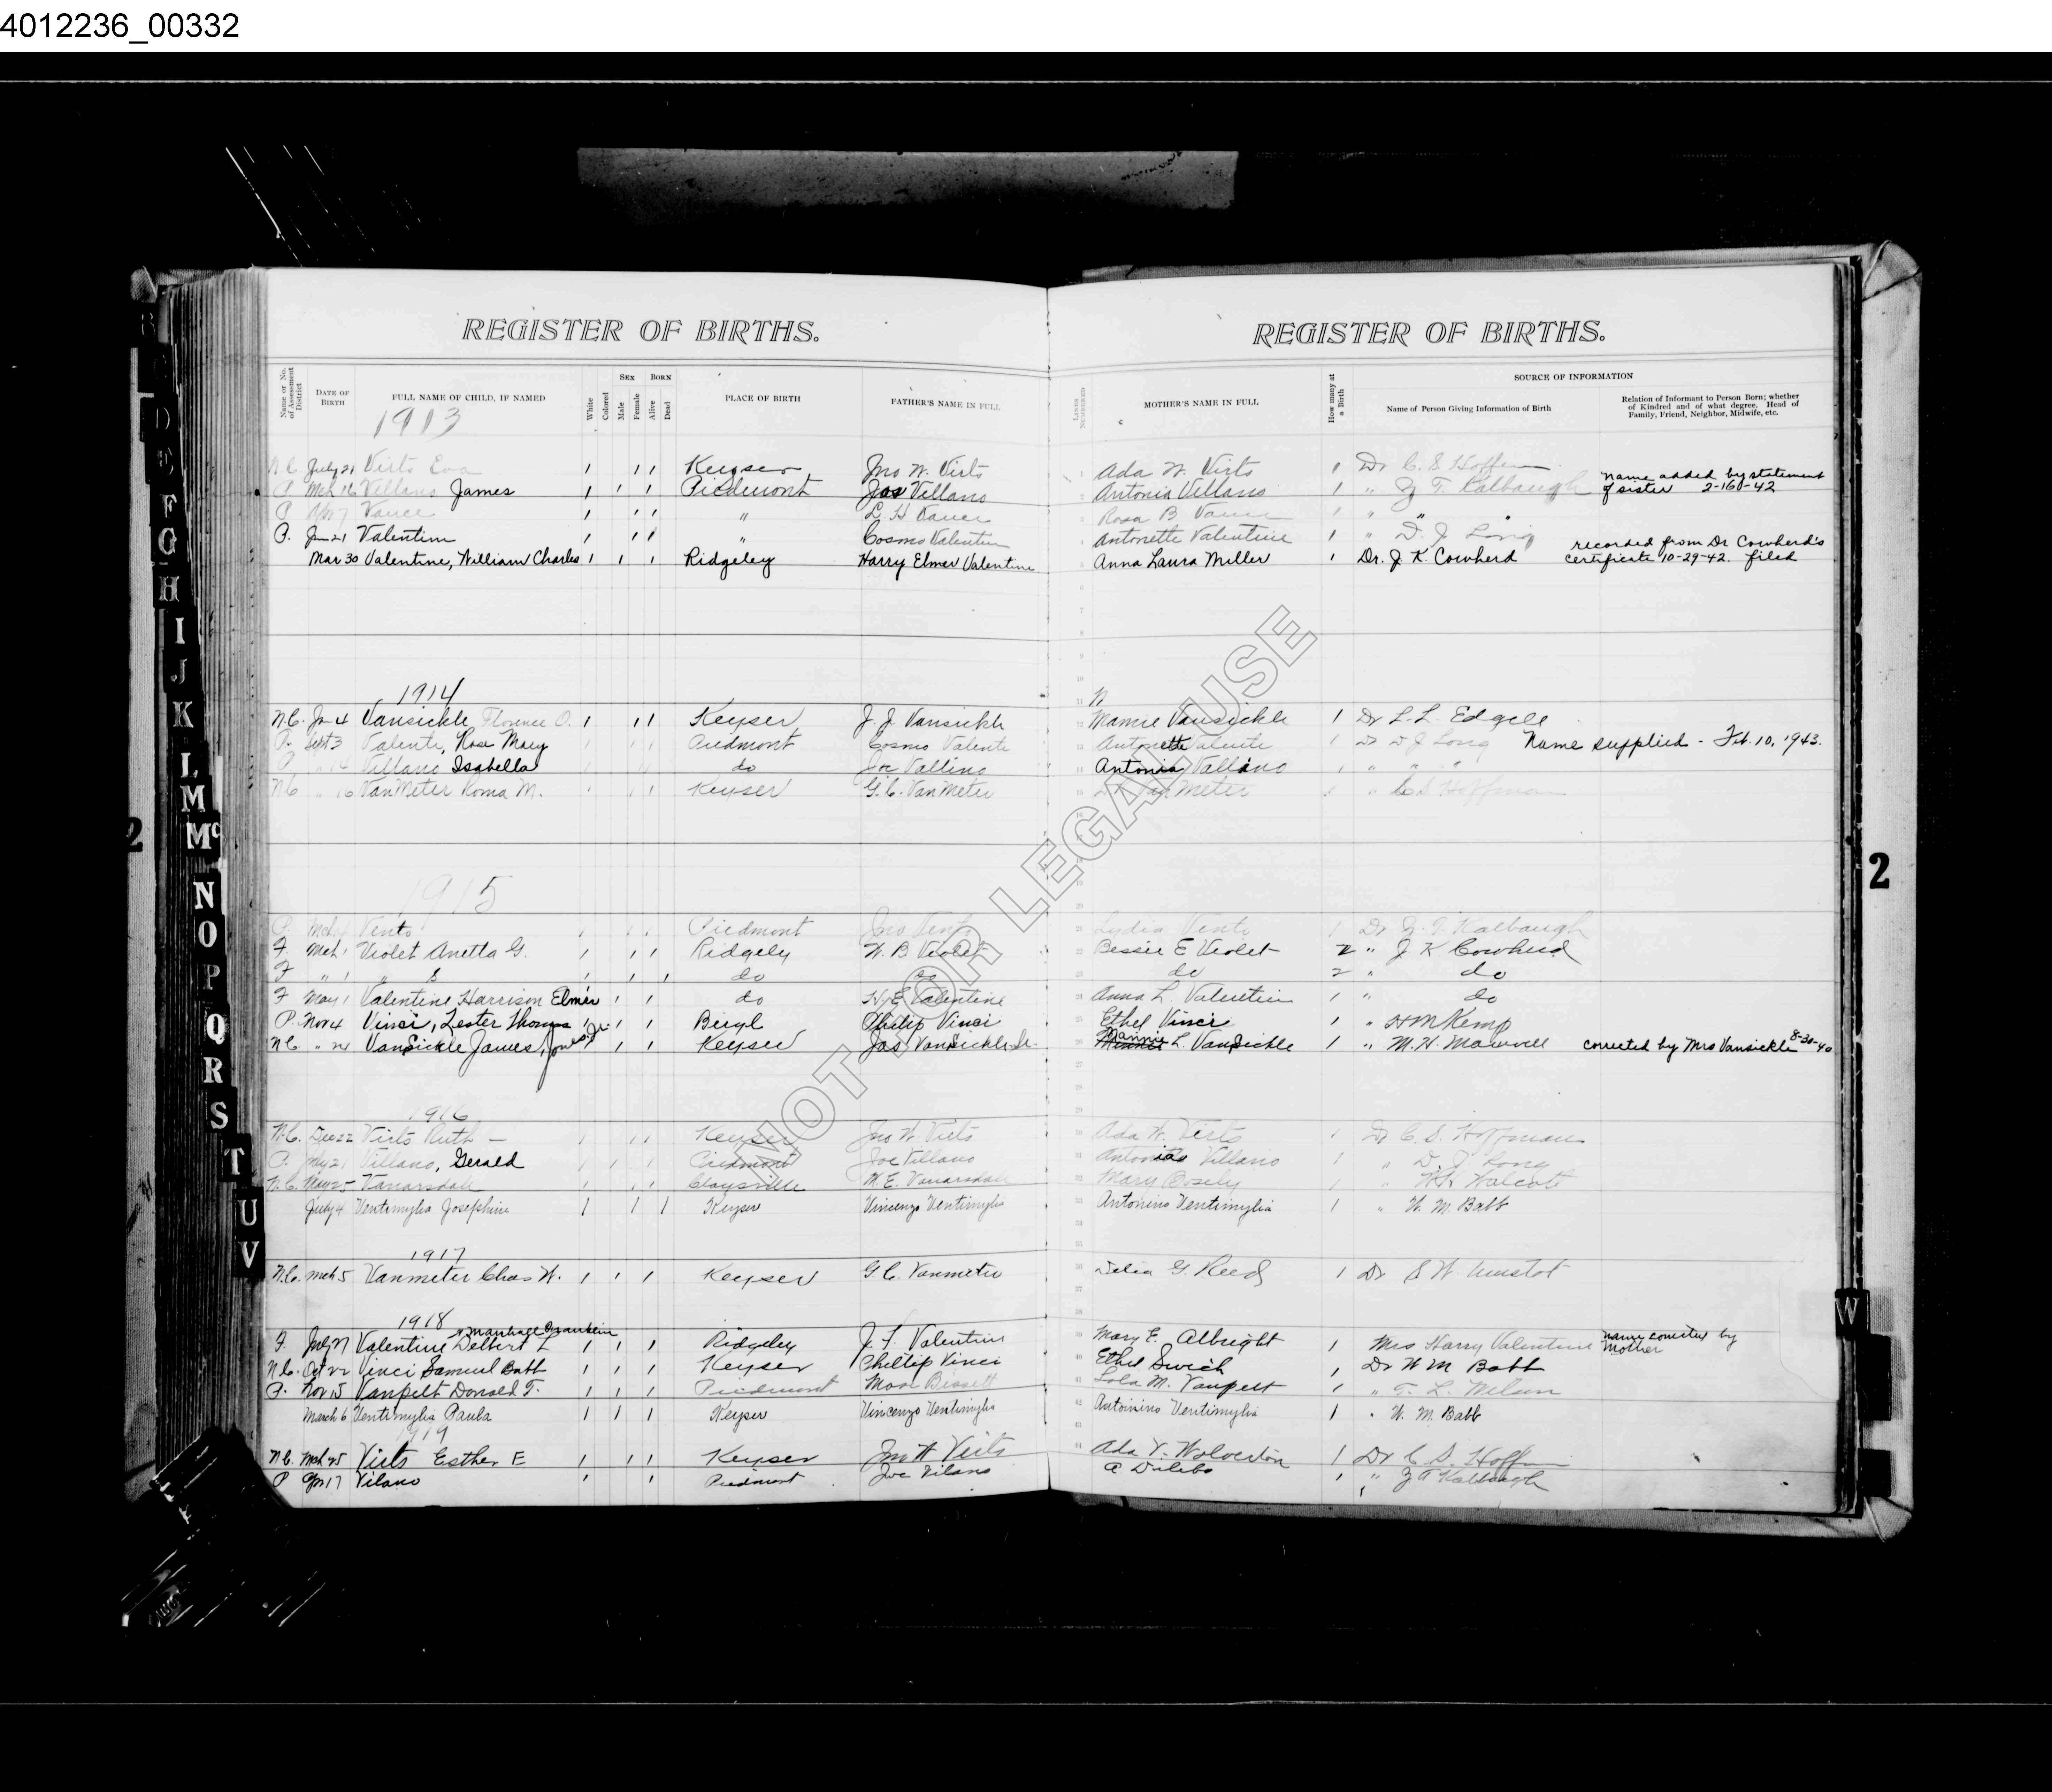 4012236_00332
REGISTER OF BIRTHS.
Name or No. of Assessment District
DATE OF BIRTH
FULL NAME OF CHILD, IF NAMED
White
Colored
SEX
Male
Female
BORN
Alive
Dead
PLACE OF BIRTH
FATHER'S NAME IN FULL
REGISTER OF BIRTHS.
LINES NUMBERED
MOTHER'S NAME IN FULL
How many at a Birth
SOURCE OF INFORMATION
Name of Person Giving Information of Birth
Relation of Informant to Person Born; whether
of Kindred and of what degree. Head of
Family, Friend, Neighbor, Midwife, etc.
1913
N.C. July 21 Virts Eva 1 1 1 Keyser Jno W. Virts Ada W. Virts 1 Dr C. S. Hoffman
P Mch 16 Villano James 1 1 1 Piedmont Jos Villano Antonia Villano 1 " Z T. Kalbaugh name added by statement of sister 2-16-42
P Apr 7 Vance 1 1 1 " L. H Vance Rosa B. Vance 1 " " "
P. Jun 21 Valentine 1 1 1 " Cosmo Valentine Antonette Valentine 1 " D. J. Long
Mar 30 Valentine, William Charles 1 1 1 Ridgeley Harry Elmer Valentine Anna Laura Miller 1 Dr. J. K. Cowherd recorded from Dr Cowherd's certificate 10-29-42. filed
1914
N.C. Jan 4 Vansickle Florence O. 1 1 1 Keyser J. J. Vansickle Mamie Vansickle 1 Dr L. L. Edgell
P. Sept 3 Valente, Rose Mary 1 1 1 Piedmont Cosmo Valente Antonette Valente 1 Dr D J Long Name supplied - Feb. 10, 1943.
P " 14 Villano Isabella do Joe Vallino Antonia Vallano 1 " " "
N.C. " 16 VanMeter Roma M. 1 1 1 Keyser G. C. VanMeter VanMeter " C S Hoffman
1915
P. Mch Vento Piedmont Jno Vento Lydia Vento 1 Dr Z. T. Kalbaugh
F Mch 1 Violet Anetta G. 1 1 1 Ridgely W. B. Violet Bessie E Violet 2 " J K Cowherd
F " 1 " S 1 1 1 do do do 2 " do
F May 1 Valentine Harrison Elmer 1 1 do Hy E Valentine Anna L. Valentine 1 " do
P. Nov 4 Vinci, Lester Thomas 1 1 1 Beryl Philip Vinci Ethel Vinci 1 " H M Kemp
N.C. " 24 VanSickle James, Jones Jr. 1 1 Keyser Jas VanSickle Sr. Mannie L. VanSickle 1 " M. H. Maxwell corrected by Mrs Vansickle 8-30-40
1916
N.C. Dec 22 Virts Ruth - 1 1 1 Keyser Jno W Virts Ada W. Virts 1 Dr C. S. Hoffman
P. May 21 Villano, Gerald 1 1 1 Piedmont Joe Villano Antonia Villano 1 " D. J. Long
N.C. Nov 25 Vanarsdale 1 1 1 Claysville M. E. Vanarsdale Mary 1 " Walcott
July 4 Ventimylia Josephine 1 1 1 Keyser Vincenzo Ventimylia Antonino Ventimylia 1 " W. M. Babb
1917
N.C. Mch 5 Vanmeter Chas W. 1 1 1 Keyser G. C. Vanmeter Delia G. Reed 1 Dr
1918
F. July 27 Valentine Delbert L Marshall Franklin 1 1 1 Ridgeley J. F. Valentine Mary E. Albright 1 Mrs Harry Valentine name corrected by Mother
N.C. Oct 22 Vinci Samuel Babb 1 1 1 Keyser Phillip Vinci Ethel 1 Dr W M Babb
P. Nov 15 Vanpelt Donald T. 1 1 1 Piedmont Bissett Lola M. Vanpelt 1 " T. L. Wilson
March 6 Ventimylia Paula 1 1 1 Keyser Vincenzo Ventimylia Antonino Ventimylia 1 " W. M. Babb
1919
N.C. Mch 25 Virts Esther E 1 1 1 Keyser Jno W Virts Ada V. Wolverton 1 Dr C. S. Hoffman
P Apr 17 Vilano 1 1 Piedmont Joe Vilano A 1 " Z T Kalbaugh
NOT FOR LEGAL USE
D
E
F
G
H
I
J
K
L
M
Mc
N
O
P
Q
R
S
T
U
V
W
2
2